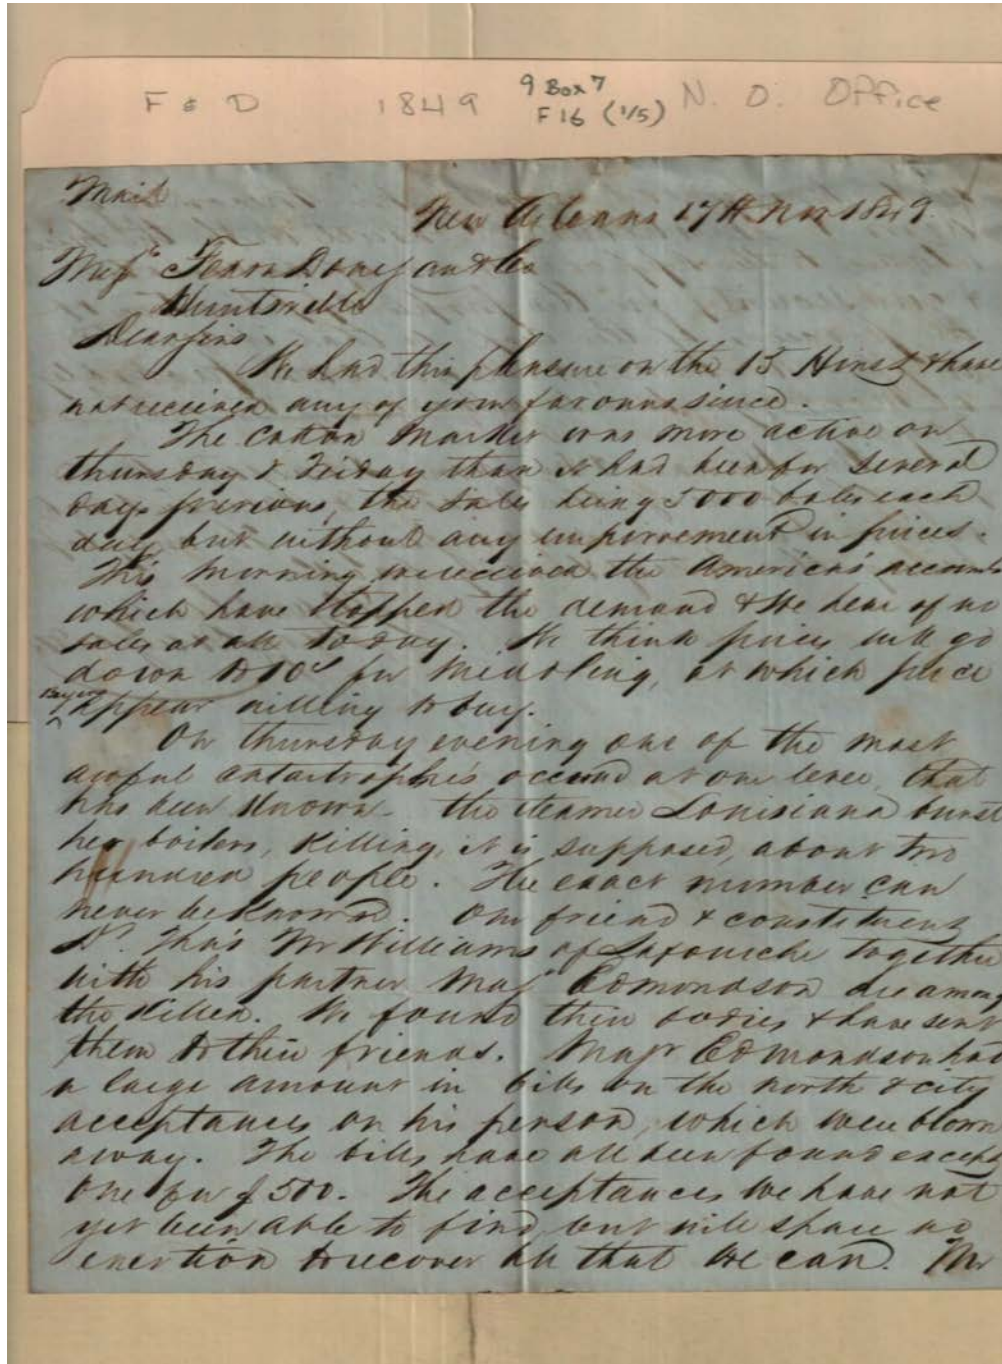 F & D 1849 9 Box 7 N. O. Office
F 16 (1/5)
Mail
New Orleans 17th Nov 1849.
Messrs Fearn Donegan & Co
Huntsville
Dear Sirs
We had this pleasure on the 15th inst & have
not received any of your favours since.
The Cotton Market was more active on
thursday & Friday than it had been for Several
days previous, the Sales being 5000 bales each
day, but without any improvement in prices.
This morning we received the America's accounts
which have Stopped the demand & We hear of no
sales at all today. We think prices will go
down to 10c for Middling, at which price
Buyers
appear willing to buy.
On thursday evening one of the most
awful catastrophe's occurred at our levee, that
has been Known. the steamer Louisiana burst
her boilers, Killing, it is supposed, about two
hundred people. The exact number can
never be Known. Our friend & constituent
Dr. Tho's McWilliams of Lafourche together
with his partner Majr Edmondson are among
the Killed. We found their bodies & have sent
them to their friends. Majr Edmondson had
a large amount in bills on the north & city
acceptances on his person, which were blown
away. The bills have all been found except
One for $500. The acceptances We have not
yet been able to find, but will spare no
exertion to recover all that We can. Mr